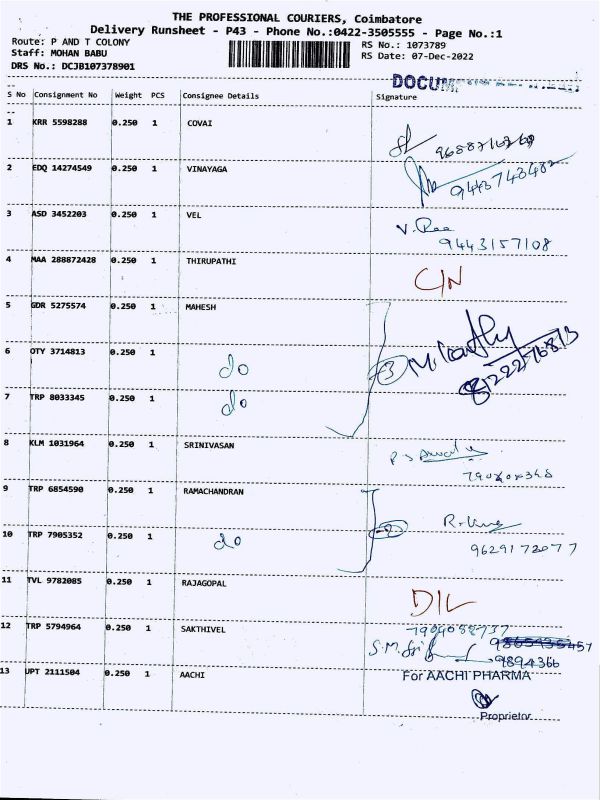 THE PROFESSIONAL COURIERS, Coimbatore
Delivery Runsheet - P43 - Phone No.:0422-3505555 - Page No.:1
Route: P AND T COLONY
Staff: MOHAN BABU
DRS No.: DCJB107378901
RS No.: 1073789
RS Date: 07-Dec-2022
S No Consignment No Weight PCS Consignee Details Signature
1 KRR 5598288 0.250 1 COVAI
2 EDQ 14274549 0.250 1 VINAYAGA
3 ASD 3452203 0.250 1 VEL
9443157108
4 MAA 288872428 0.250 1 THIRUPATHI C/N
5 GDR 5275574 0.250 1 MAHESH
6 OTY 3714813 0.250 1 do 3
7 TRP 8033345 0.250 1 do
8 KLM 1031964 0.250 1 SRINIVASAN
9 TRP 6854590 0.250 1 RAMACHANDRAN
10 TRP 7905352 0.250 1 do 2
9629172077
11 TVL 9782085 0.250 1 RAJAGOPAL D/L
12 TRP 5794964 0.250 1 SAKTHIVEL
9894366
13 UPT 2111504 0.250 1 AACHI For AACHI PHARMA
Proprietor